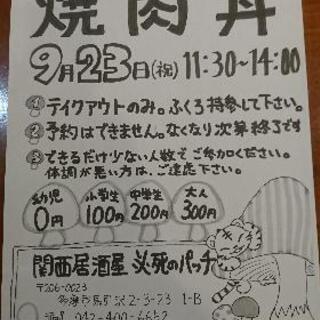 焼肉丼
9月23日(祝) 11:30~14:00
① テイクアウトのみ。ふくろ持参して下さい。
② 予約はできません。なくなり次第終了です
③ できるだけ少ない人数でご参加ください。
体調が悪い方は、ご遠慮下さい。
幼児 0円
小学生 100円
中学生 200円
大人 300円
関西居酒屋 必死のパッチ
〒206-0023
2-3-23 1-B
042-400-6652